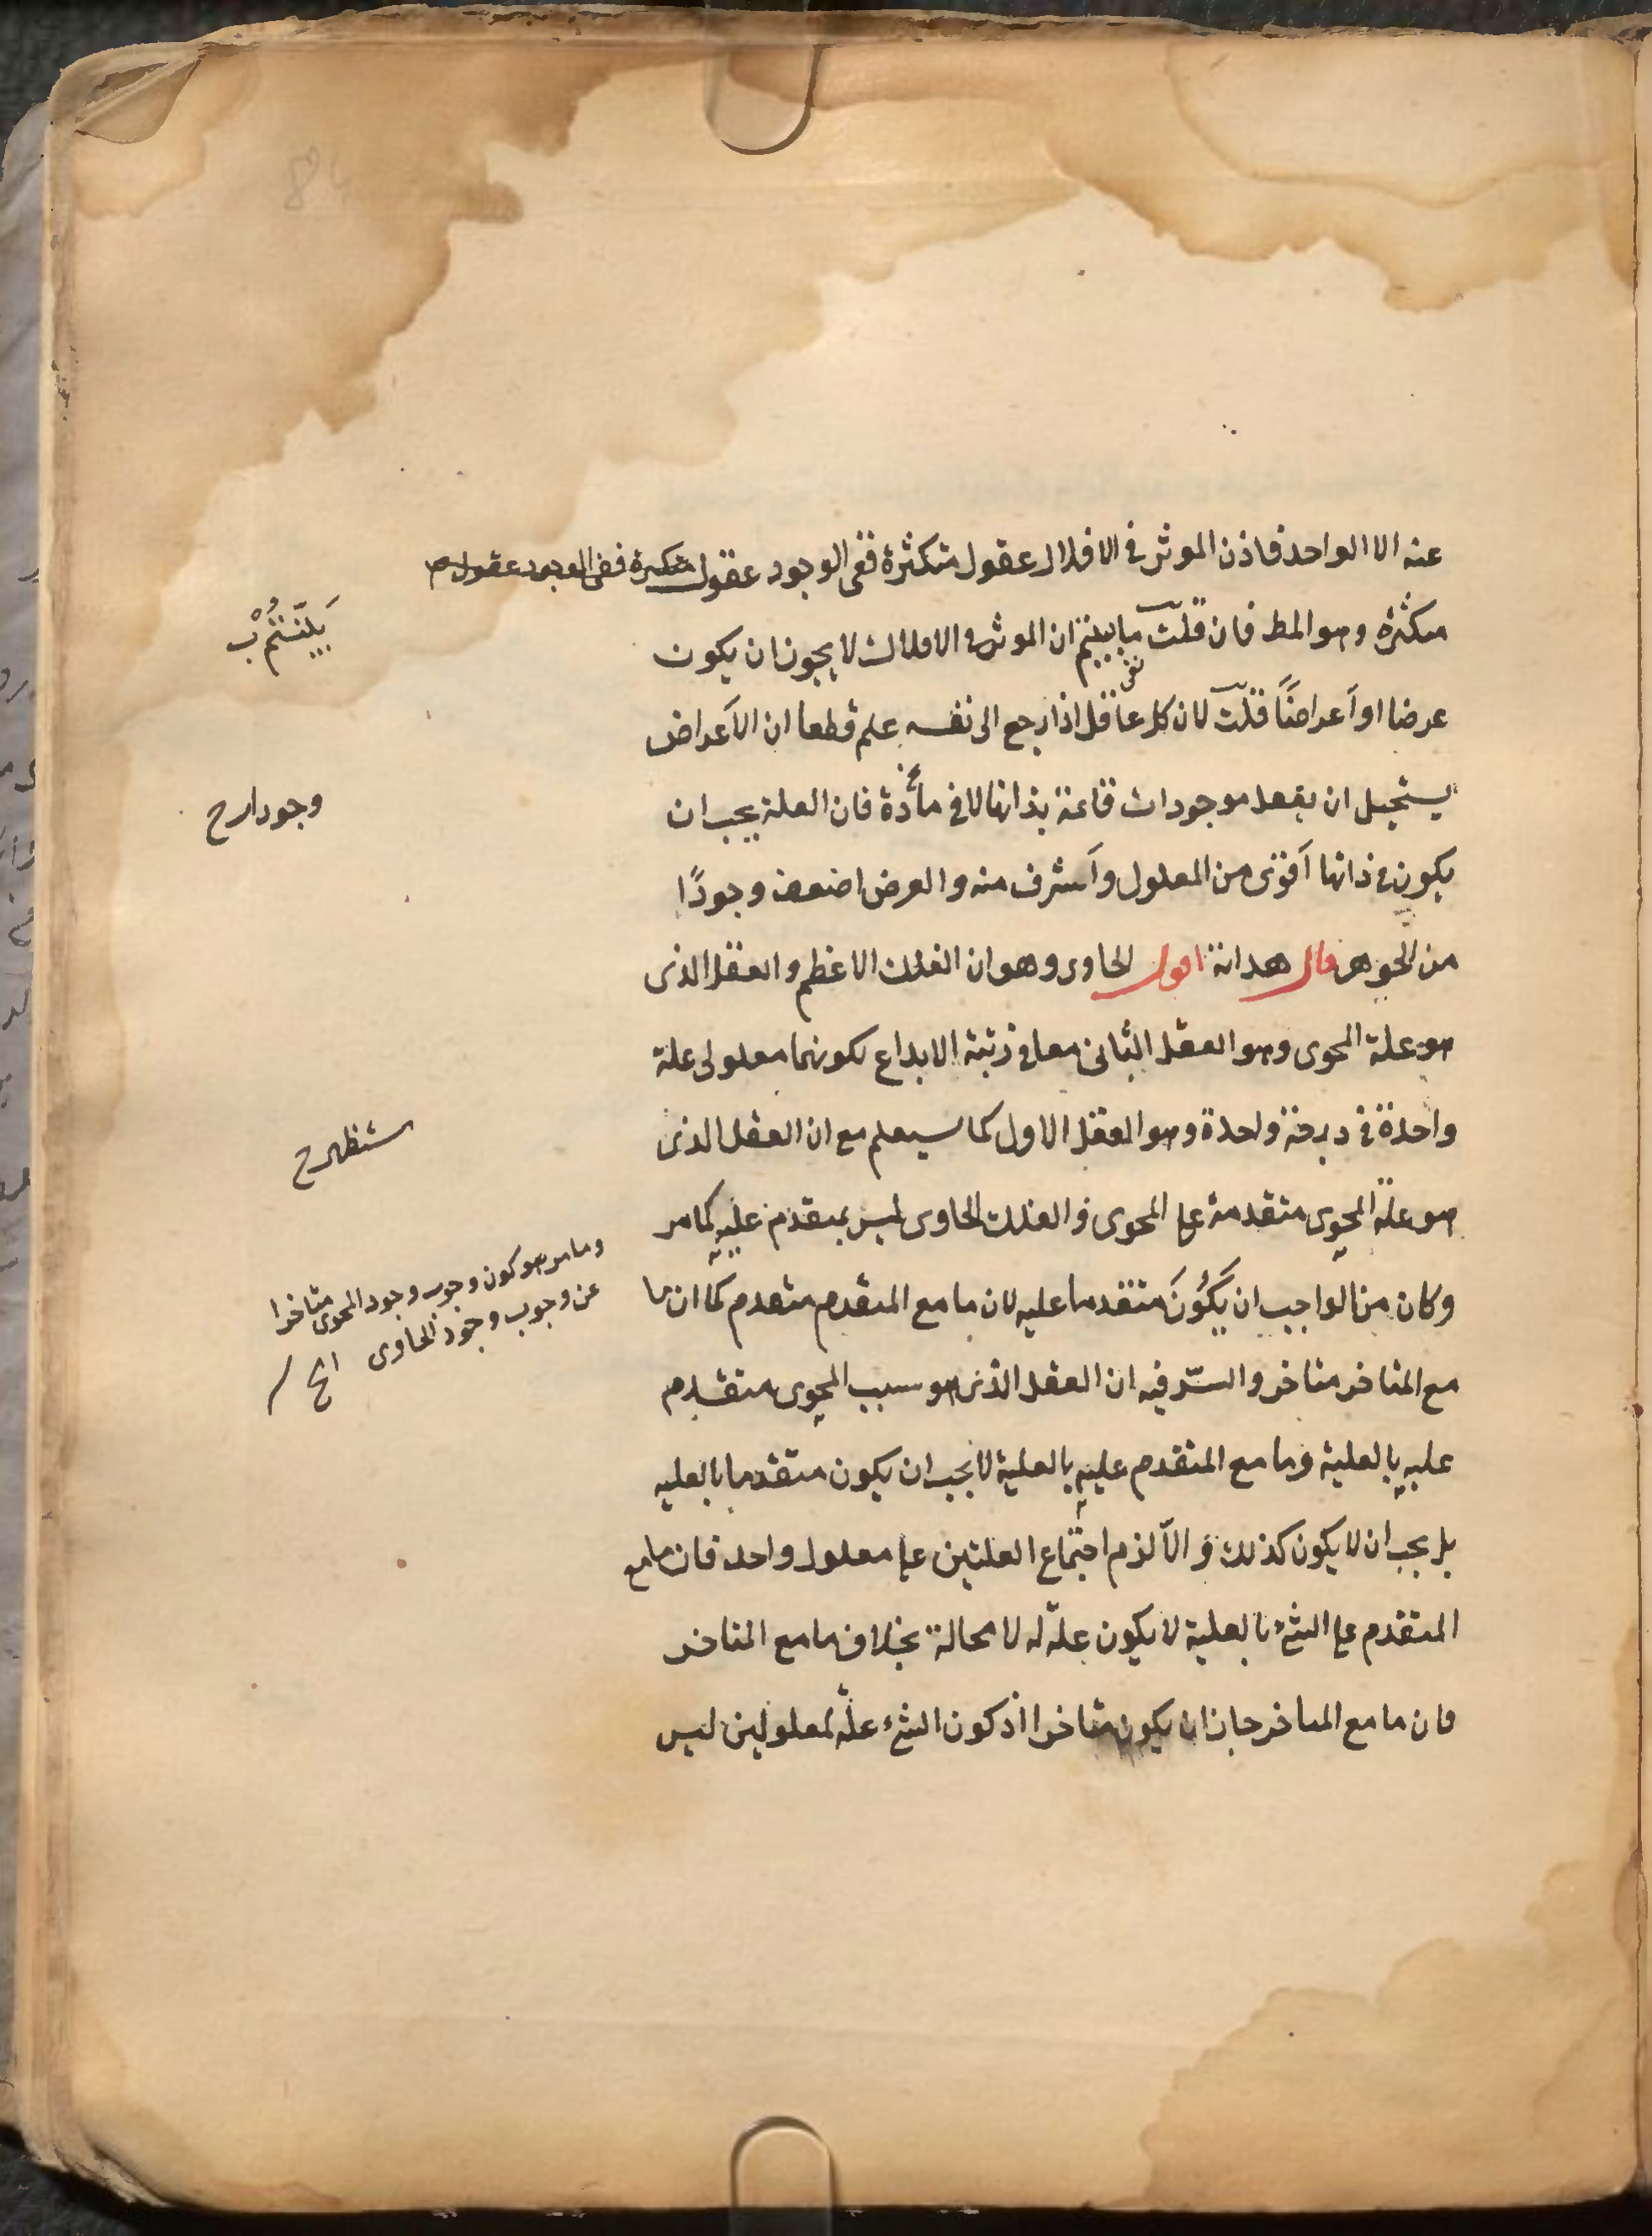 عنه الا الواحد فاذن الموثر في الافلاك عقول متكثرة ففى الوجود عقول متكثرة ففى الوجود عقول
متكثرة وهو المط فان قلت ما بينتم ان الموثر فى الافلاك لا يجوز ان يكون
عرضا او أعراضًا قلت لان كل عاقل اذا رجع الى نفسه علم قطعا ان الأعراض
يستحيل ان يفعل موجودات قائمة بذاتها لا فى مادة فان العلة يجب ان
يكون فى ذاتها أقوى من المعلول وأشرف منه والعرض اضعف وجودًا
من الجوهر قال هداية اقول الحاوى وهو ان الفلك الاعظم والعقل الذى
هو علة المحوى وهو العقل الثانى معا فى رتبة الابداع لكونهما معلولى علة
واحدة فى درجة واحدة وهو العقل الاول كما سيعلم مع ان العقل الذى
هو علة المحوى متقدمة على المحوى و الفلك الحاوى ليس بمتقدم عليه كما مر
وكان من الواجب ان يَكُونَ متقدما عليه لان ما مع المتقدم متقدم كما ان ما
مع المتاخر متاخر والسّر فيه ان العقل الذى هو سبب المحوى متقدم
عليه بالعلية وما مع المتقدم عليه بالعلية لا يجب ان يكون متقدما بالعليه
بل يجب ان لا يكون كذلك و الّا لزم اجتماع العلتين على معلول واحد فان ما مع
المتقدم على الشئ بالعلية لا يكون علة له لا محالة بخلاف ما مع المتاخر
فان ما مع المتاخر جاز ان يكون متاخرا اذ كون الشئ علّة لمعلولين ليس
بَيَّنْتُمْ
وجودا رح
ستظهر ح
وما مر هو كون وجوب وجود المحوى متاخرا
عن وجوب وجود الحاوى